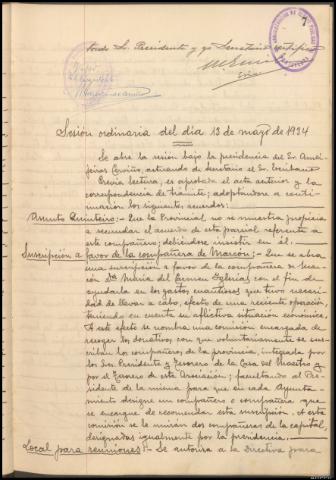 7
Sr. Presidente y yo Secretario certifico
Sesión ordinaria del dia 13 de mayo de 1934
Se abre la sesión bajo la presidencia del Sr. Amei-
jeiras Cerviño, actuando de secretario el Sr.
Previa lectura, es aprobada el acta anterior y la
correspondencia de trámite; adoptándose a conti-
nuación los siguientes acuerdos:
Asunto Quinteiro:- Que la Provincial no se muestra propicia
a secundar el acuerdo de esta parcial referente a
este compañero; debiéndose insistir en él.
Suscripción a favor de la compañera de Marcón:- Que se abra
una suscripción a favor de la compañera de Mar-
cón Dª María del Carmen con el fin de
ayudarla en los gastos cuantiosos que tuvo necesi-
dad de llevar a cabo, efecto de una reciente operación,
teniendo en cuenta su aflictiva situación económica.
A este efecto se nombra una comisión encargada de
recoger los donativos con que voluntariamente se sus-
criban los compañeros de la provincia, integrada por
los Sres. Presidente y Tesorero de la Casa del Maestro y
por el Tesorero de esta Asociación; facultando al Pre-
sidente de la misma para que en cada Ayunta-
miento designe un compañero o compañera que
se encargue de recomendar esta suscripción. A esta
comisión se le unirán dos compañeras de la capital,
designadas igualmente por la presidencia.
Local para reuniones:- Se autoriza a la Directiva para